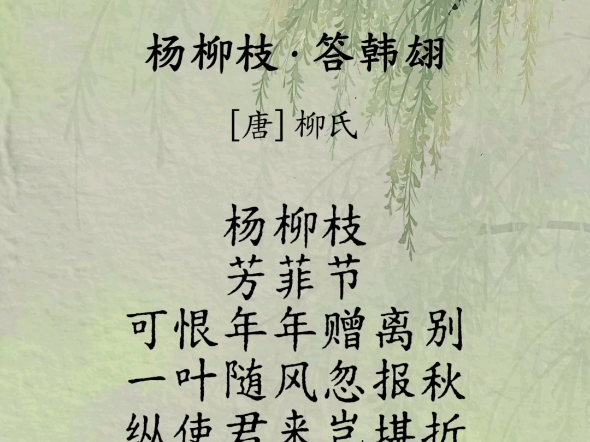 杨柳枝·答韩翃
[唐]柳氏
杨柳枝
芳菲节
可恨年年赠离别
一叶随风忽报秋
纵使君来岂堪折